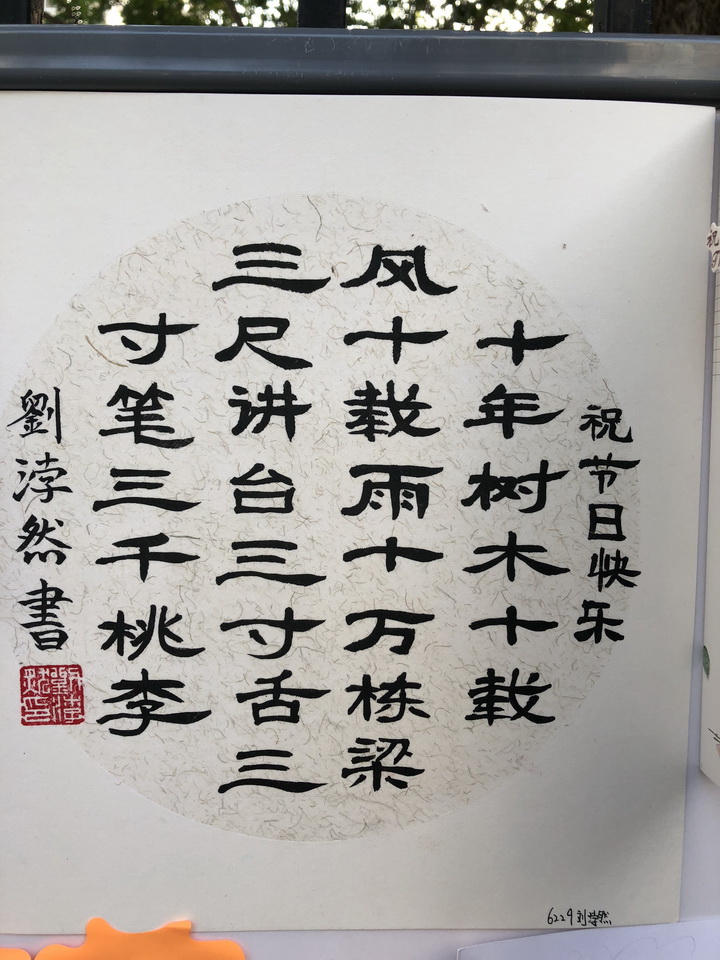 祝节日快乐
十年树木十载
风十载雨十万栋梁
三尺讲台三寸舌三
寸笔三千桃李
劉浡然書
6229刘浡然